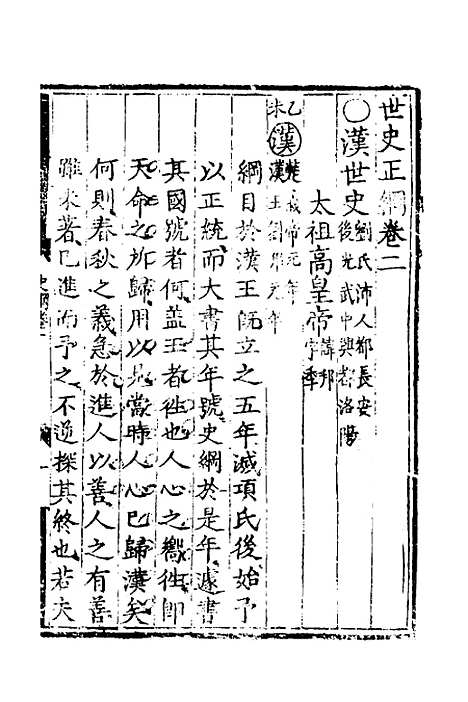 世史正綱卷二
○漢世史劉氏沛人都長安後光武中興都洛陽
太祖高皇帝諱邦字季
乙未漢楚義帝元年漢王劉邦元年
綱目於漢王既立之五年滅項氏後始予
以正統而大書其年號史綱於是年遽書
其國號者何蓋王者徃也人心之嚮徃即
天命之所歸用以見當時人心已歸漢矣
何則春秋之義急於進人以善人之有善
雖未著已進而予之不逆探其終也若夫
史綱卷